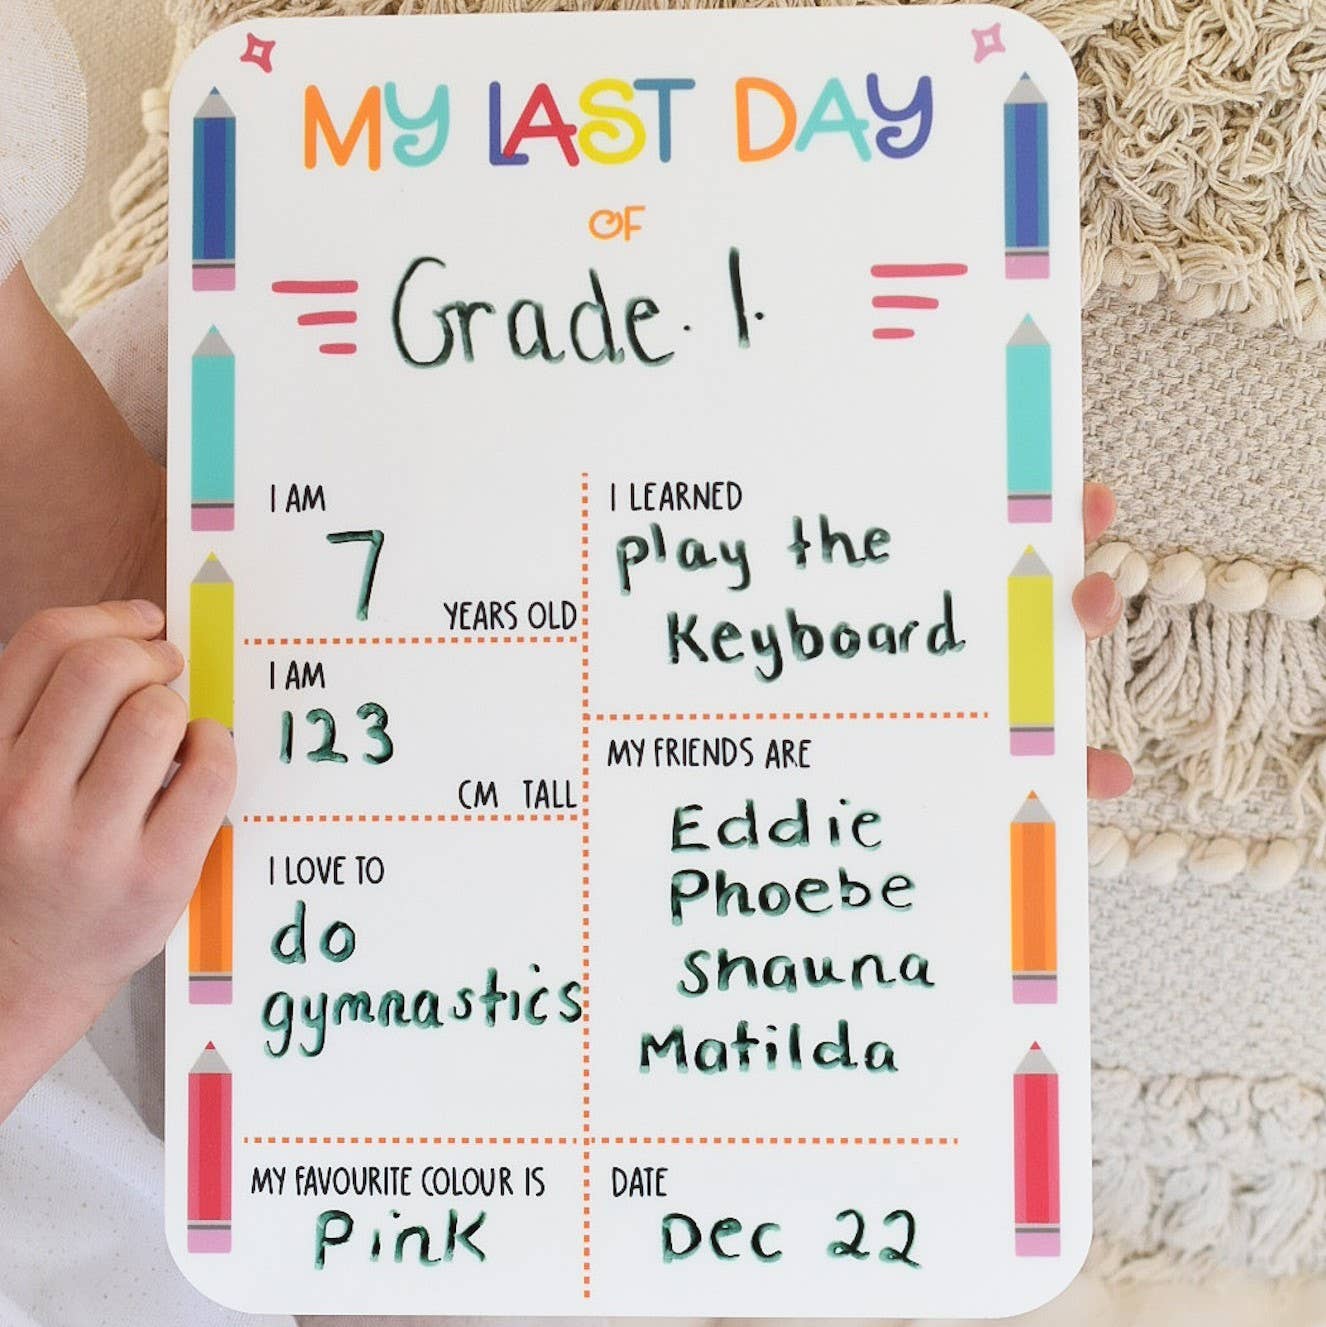 MY LAST DAY
OF
Grade. 1.
I AM
7
YEARS OLD
I AM
123
CM TALL
I LOVE TO
do
gymnastics
MY FAVOURITE COLOUR IS
Pink
I LEARNED
play the
Keyboard
MY FRIENDS ARE
Eddie
Phoebe
Shauna
Matilda
DATE
Dec 22